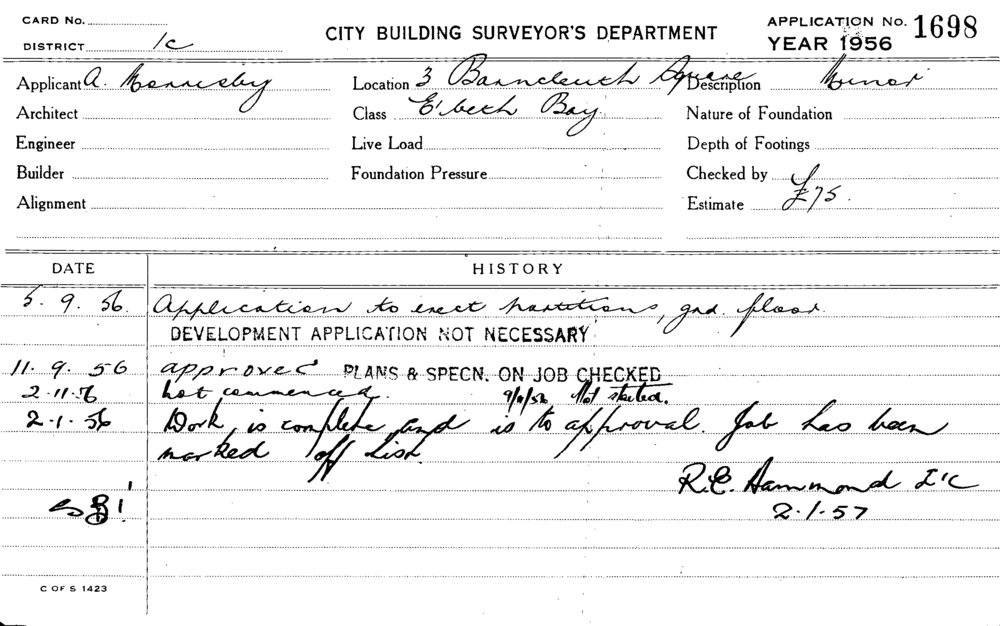 CARD No.
DISTRICT 1c
CITY BUILDING SURVEYOR'S DEPARTMENT
APPLICATION No. 1698
YEAR 1956
Applicant A. Hornisby Location 3 Barncleuth Square Description Minor
Architect Class E'beth Bay Nature of Foundation
Engineer Live Load Depth of Footings
Builder Foundation Pressure Checked by
Alignment Estimate £75.
DATE HISTORY
5. 9. 56. Application to erect partitions, grd. floor.
DEVELOPMENT APPLICATION NOT NECESSARY
11. 9. 56 approved PLANS & SPECN. ON JOB CHECKED
2.11.56 Not commenced. Not started.
2.1.56 Work is complete and is to approval. Job has been
marked off list.
R.E. Hammond I'c
2.1.57
C OF S 1423